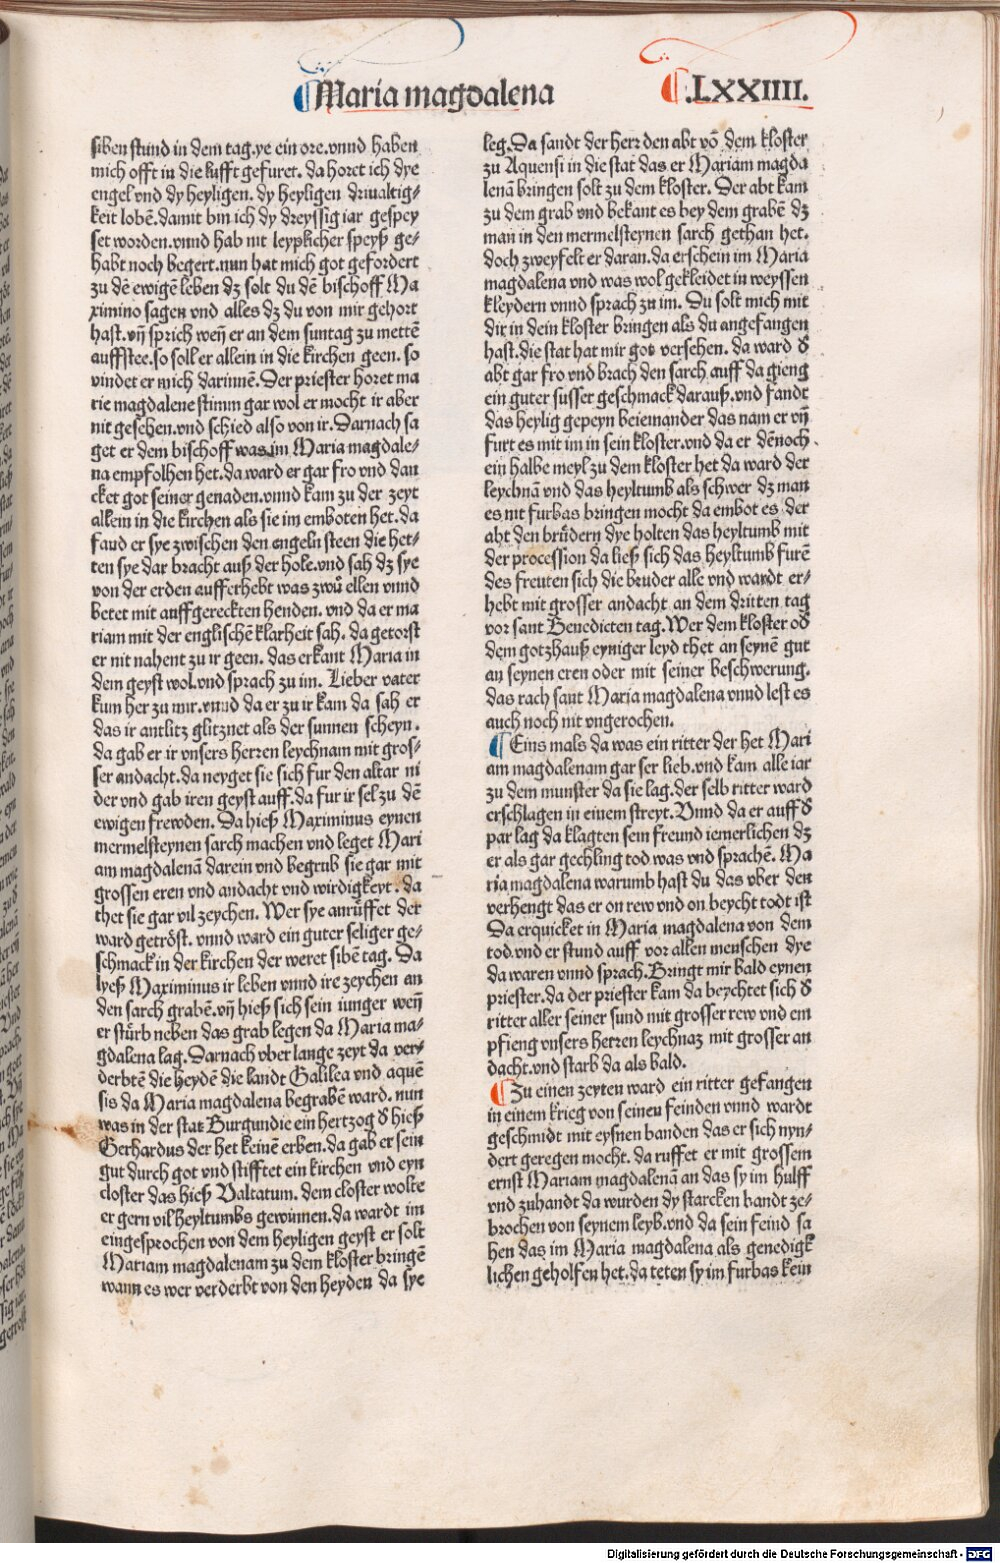 Maria magdalena
.LXXIIII.
siben stund in dem tag.ye ein ore.vnnd haben
mich offt in die lufft gefuret. da horet ich dye
engel vnd dy heyligen. dy heyligen driualtig⸗
keit lobē.damit bin ich dy dreyssig iar gespey
set worden.vnnd hab nit leyplicher speyß ge⸗
habt noch begert.nun hat mich got gefordert
zu dē ewigē leben dz solt du dē bischoff Ma
ximino sagen vnd alles dz du von mir gehort
hast.vn̄ sprich wen̄ er an dem suntag zu mettē
auffstee.so soll er allein in die kirchen geen. so
vindet er mich darinnē.Der priester horet ma
rie magdalene stimm gar wol er mocht ir aber
nit gesehen.vnd schied also von ir.Darnach sa
get er dem bischoff was im Maria magdale⸗
na empfolhen het.da ward er gar fro vnd dan
cket got seiner genaden.vnnd kam zu der zeyt
allein in die kirchen als sie im emboten het.da
fand er sye zwischen den engeln steen die het⸗
ten sye dar bracht auß der hole.vnd sah dz sye
von der erden aufferhebt was zwū ellen vnnd
betet mit auffgereckten henden. vnd da er ma
riam mit der englischē klarheit sah. da getorst
er nit nahent zu ir geen. das erkant Maria in
dem geyst wol.vnd sprach zu im. Lieber vater
kum her zu mir.vnnd da er zu ir kam da sah er
das ir antlitz glitznet als der sunnen scheyn.
da gab er ir vnsers herren leychnam mit gros⸗
ser andacht.da neyget sie sich fur den altar ni
der vnd gab iren geyst auff.da fur ir sel zu dē
ewigen frewden. Da hieß Maximinus eynen
mermelsteynen sarch machen vnd leget Mari
am magdalenā darein vnd begrub sie gar mit
grossen eren vnd andacht vnd wirdigkeyt. da
thet sie gar vil zeychen. Wer sye anrůffet der
ward getröst. vnnd ward ein guter seliger ge⸗
schmack in der kirchen der weret sibē tag. Da
lyeß Maximinus ir leben vnnd ire zeychen an
den sarch grabē.vn̄ hieß sich sein iunger wen̄
er stürb neben das grab legen da Maria ma⸗
gdalena lag.Darnach vber lange zeyt da ver⸗
derbtē die heydē die landt Galilea vnd aquē
sis da Maria magdalena begrabē ward. nun
was in der stat Burgundie ein hertzog ð hieß
Gerhardus der het keinē erben.da gab er sein
gut durch got vnd stifftet ein kirchen vnd eyn
closter das hieß Valtatum. dem closter wolte
er gern vil heyltumbs gewinnen.da wardt im
eingesprochen von dem heyligen geyst er solt
Mariam magdalenam zu dem kloster bringē
wann es wer verderbt von den heyden da sye
leg.Da sandt der herr den abt vō dem kloster
zu Aquensi in die stat das er Mariam magda
lenā bringen solt zu dem kloster. Der abt kam
zu dem grab vnd bekant es bey dem grabē dz
man in den mermelsteynen sarch gethan het.
doch zweyfelt er daran.da erschein im Maria
magdalena vnd was wol gekleidet in weyssen
kleydern vnnd sprach zu im. Du solt mich mit
dir in dein kloster bringen als du angefangen
hast.die stat hat mir got versehen. da ward ð
abt gar fro vnd brach den sarch auff da gieng
ein guter süsser geschmack darauß.vnd fandt
das heylig gepeyn beieinander das nam er vn̄
furt es mit im in sein kloster.vnd da er dēnoch
ein halbe meyl zu dem kloster het da ward der
leychnā vnd das heyltumb als schwer dz man
es nit furbas bringen mocht da embot es der
abt den brůdern dye holten das heyltumb mit
der procession da ließ sich das heyltumb furē
des freuten sich die bruder alle vnd wardt er⸗
hebt mit grosser andacht an dem dritten tag
vor sant Benedicten tag.Wer dem kloster oð
dem gotzhauß eyniger leyd thet an seynē gut
an seynen eren oder mit seiner beschwerung.
das rach sant Maria magdalena vnnd lest es
auch noch nit vngerochen.
Eins mals da was ein ritter der het Mari
am magdalenam gar ser lieb.vnd kam alle iar
zu dem munster da sie lag.der selb ritter ward
erschlagen in einem streyt. Vnnd da er auff ð
par lag da klagten sein freund iemerlichen dz
er als gar gechling tod was vnd sprachē. Ma
ria magdalena warumb hast du das vber den
verhengt das er on rew vnd on beycht todt ist
Da erquicket in Maria magdalena von dem
tod.vnd er stund auff vor allen menschen dye
da waren vnnd sprach.Bringt mir bald eynen
priester.da der priester kam da beychtet sich ð
ritter aller seiner sund mit grosser rew vnd em
pfieng vnsers herren leychnaz mit grosser an
dacht.vnd starb da als bald.
Zu einen zeyten ward ein ritter gefangen
in einem krieg von seinen feinden vnnd wardt
geschmidt mit eysnen banden das er sich nyn⸗
dert geregen mocht. da ruffet er mit grossem
ernst Mariam magdalenā an das sy im hulff
vnd zuhandt da wurden dy starcken bandt ze⸗
brochen von seynem leyb.vnd da sein feind sa
hen das im Maria magdalena als genedigk
lichen geholfen het.da teten sy im furbas kein
Digitalisierung gefördert durch die Deutsche Forschungsgemeinschaft - DFG